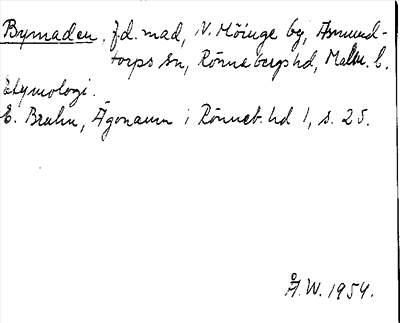 Bymaden. f.d. mad, N. Möinge by, Asmund-
torps sn, Rönnebergs hd, Malm. l.
Etymologi.
E. Bruhn, Ägonamn i Rönneb. hd 1, s. 25.
Å.W. 1954.